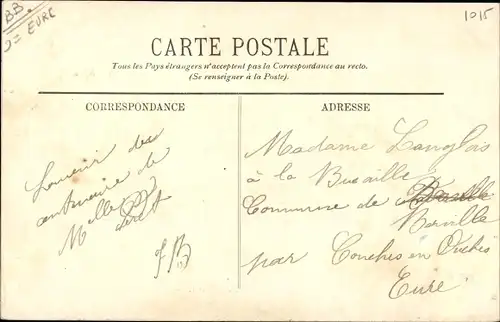 BB.
EURE
1015
CARTE POSTALE
Tous les Pays étrangers n'acceptent pas la Correspondance au recto.
(Se renseigner à la Poste).
CORRESPONDANCE
ADRESSE
Souvenir du
centenaire de
Melle
Madame Langlois
à la Bucaille
Commune de
Berville
par Conches en Ouches
Eure